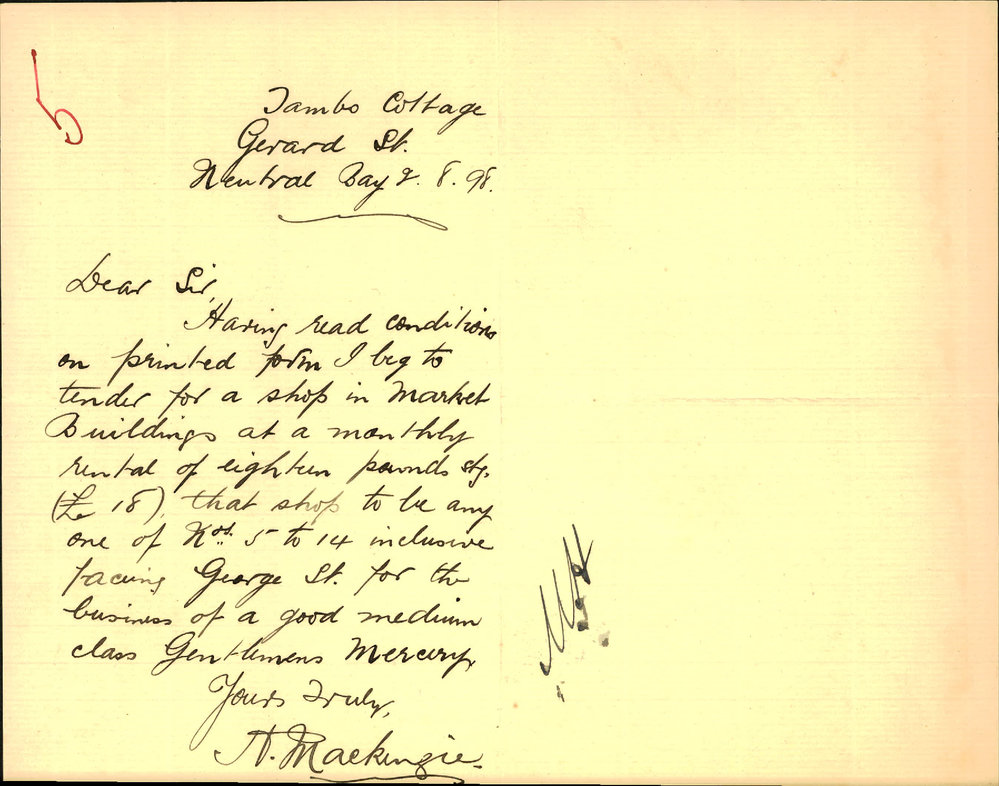 5
Tambo Cottage
Gerard St.
Neutral Bay 2. 8. 98.
Dear Sir,
Having read conditions
on printed form I beg to
tender for a shop in Market
Buildings at a monthly
rental of eighteen pounds stg.
(£ 18), that shop to be any
one of Nos. 5 to 14 inclusive
facing George St. for the
business of a good medium
class Gentlemens Mercery,
Yours Truly,
A. Mackenzie.